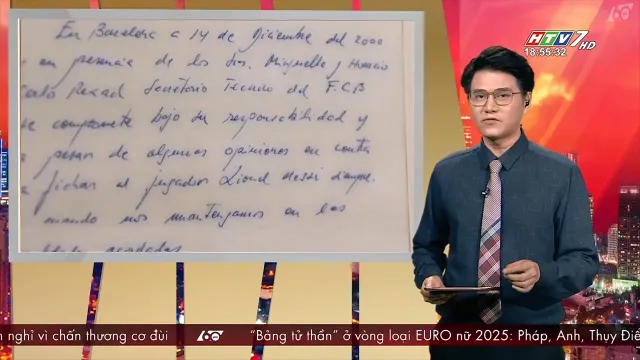 En Barcelona a 14 de Diciembre del 2000
en presencia de los Srs. Minguella y Horacio
Carlo Rexach Secretario Tecnico del F.C.B
se compromete bajo su responsabilidad y
a pesar de algunas opiniones en contra
a fichar al jugador Lionel Messi siempre
cuando nos mantengamos en las
HTV7 HD
18:55:32
60
nghỉ vì chấn thương cơ đùi 60 "Bảng tử thần" ở vòng loại EURO nữ 2025: Pháp, Anh, Thụy